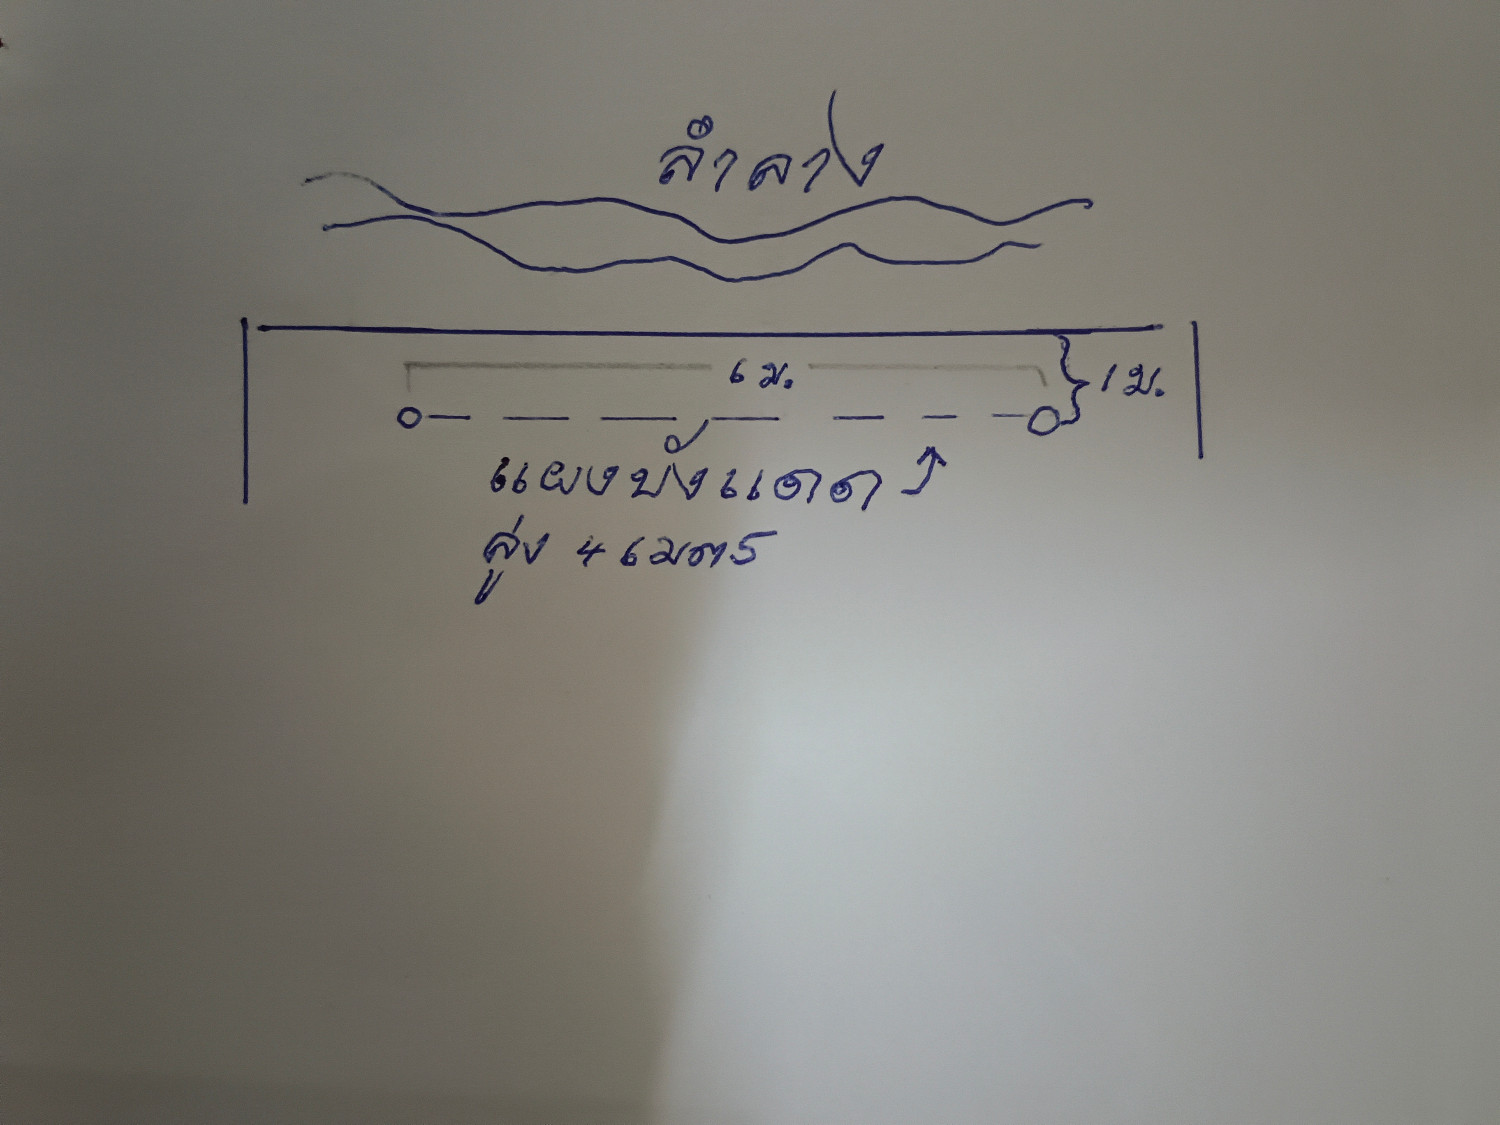 ลำลาง
6 ม.
1 ม.
แผงบังแดด
สูง 4 เมตร